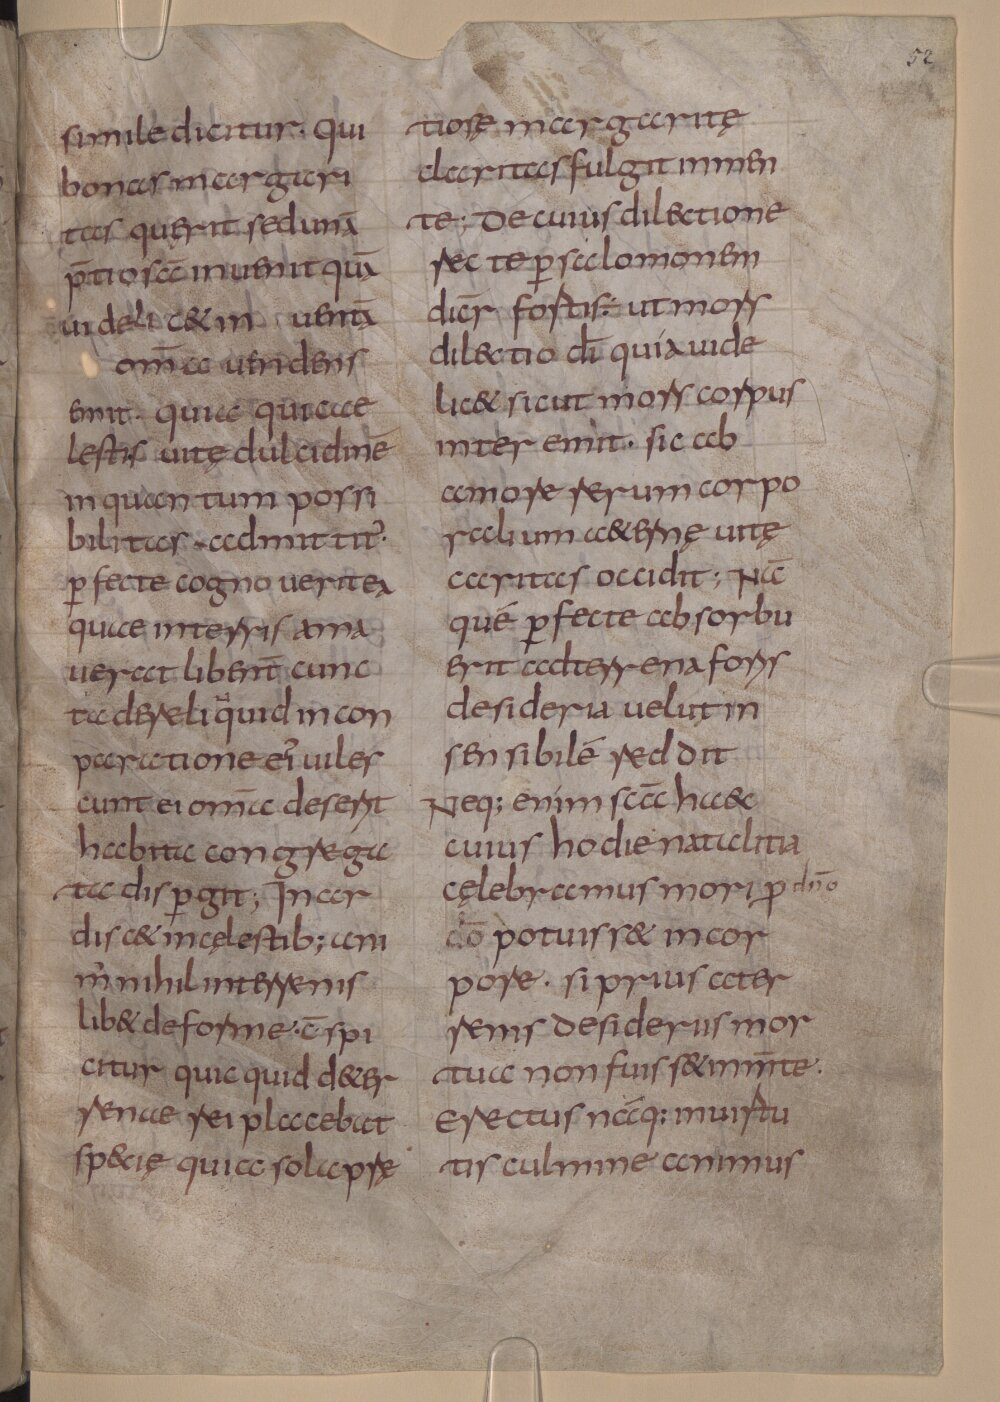 52
simile dicitur. Qui
bonas margari
tas querit sed unā
p̄tiosā inuenit quā
uideli c& in uentā
om̄a uendens
emit. quia qui cae
lestis uitę dulcidinē
in quantum possi
bilitas admittit.
ꝑfecte cognouerit ea
quae interris ama
uerat libent̄ cunc
ta derelinquid in con
paratione ei uiles
cunt ei om̄a deserit
habita congrega
ta dispergit; In ar
dis c& in cęlestib; ani
m̄ nihil interrenis
lib& deforme. c̄spi
citur quicquid d&er
renae rei placebat
sp&cię quia sola prę
tiosę margaritę
claritas fulgit inmen
te; De cuius dilectione
rec te ꝑ salomonem
dicr̄ fortis: ut mors
dilectio d̄i quia uide
lic& sicut mors corpus
inter emit. sic ab
amore rerum corpo
ralium a&ernę uitę
caritas occidit; Nā
quē ꝑfecte absorbu
erit ad terrena foris
desideria uelut in
sensibilē reddit
Neq; enim sc̄a haec
cuius hodie natalitia
cęlebramus mori ꝓ dn̄o
d̄o potuiss& in cor
pore. si prius ater
renis desideriis mor
tua non fuiss& in m̄te.
Erectus nāq; in uirtu
tis culmine animus